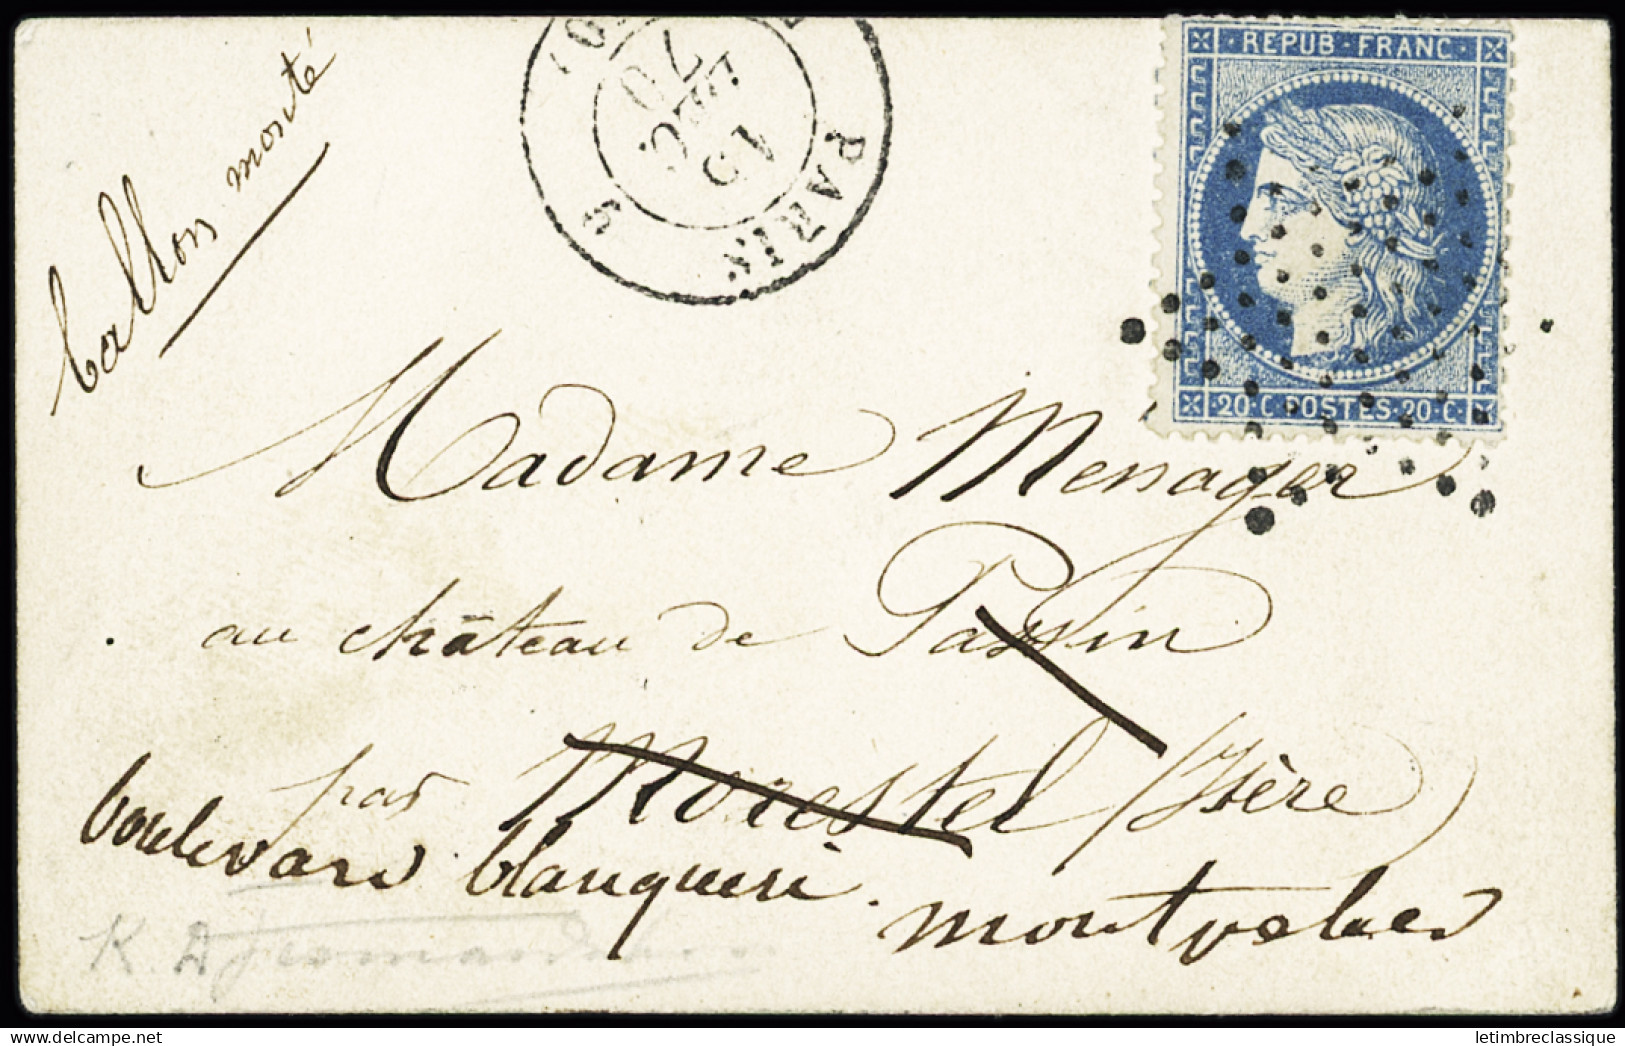 ballon monté
PARIS
15
DEC.
70
REPUB·FRANC
20·C POSTES·20·C
Madame Menager
au château de Passin
par Morestel (Isère)
boulevard blanqueri.
montpelier
K. D
delcampe.net
letimbreclassique